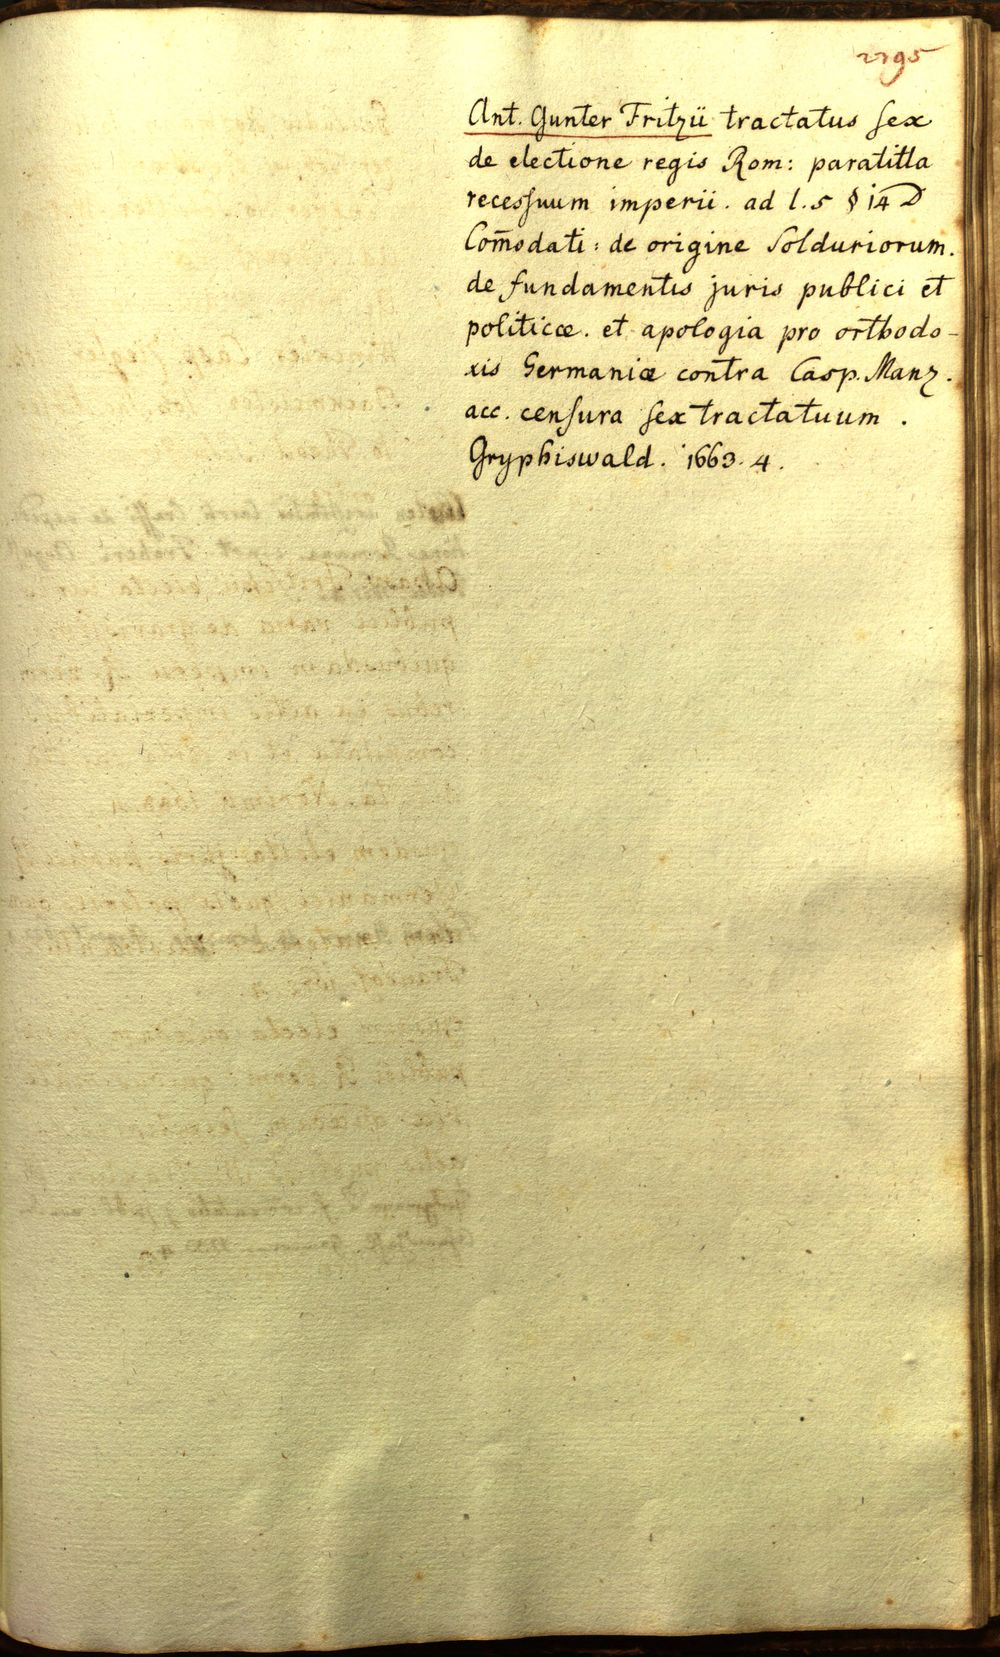 2795
Ant. Gunter Fritzii tractatus sex
de electione regis Rom: paratitla
recessuum imperii. ad l. 5 § 14 D
Com̄odati: de origine Solduriorum.
de fundamentis juris publici et
politicæ. et apologia pro orthodo-
xis Germaniæ contra Casp. Manz.
acc. censura sex tractatuum.
Gryphiswald. 1663. 4.